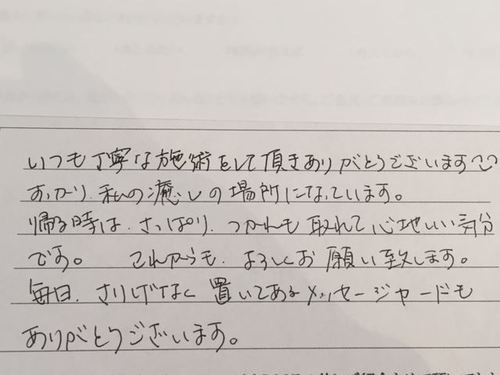 いつも丁寧な施術をして頂きありがとうございます
すっかり、私の癒しの場所になっています。
帰る時は、さっぱり、つかれも取れて心地いい気分
です。 これからも、よろしくお願い致します。
毎日、さりげなく置いてあるメッセージカードも
ありがとうございます。